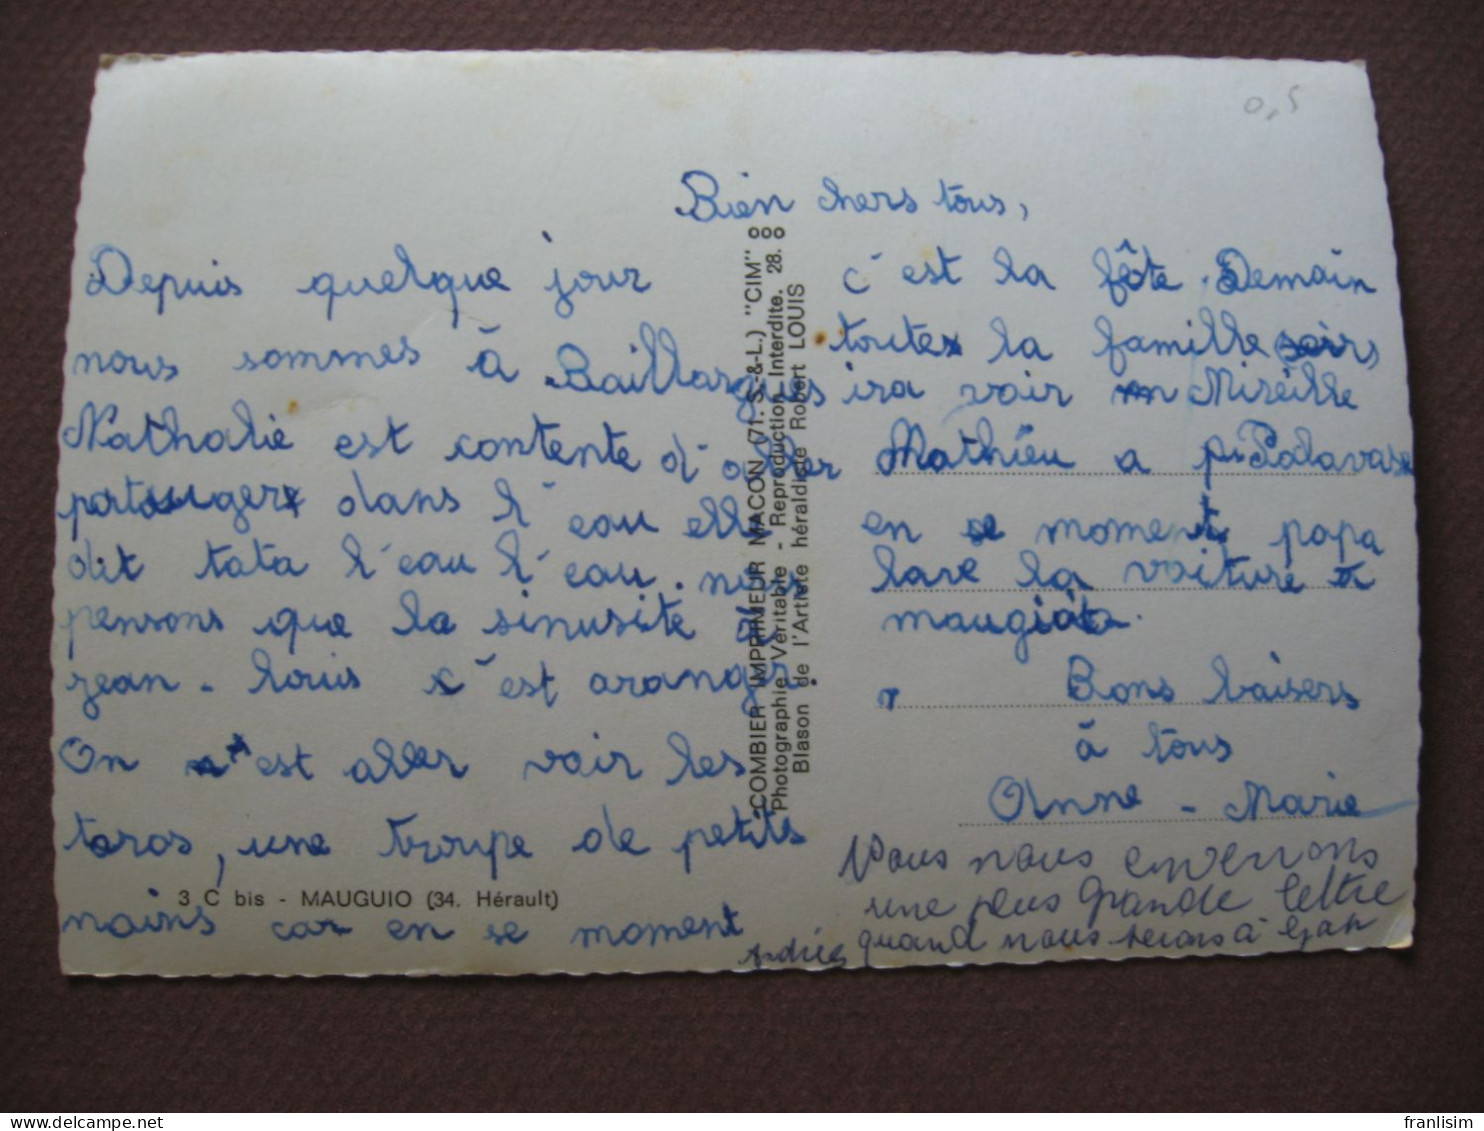 0,5
Bien chers tous,
Depuis quelque jour
nous sommes à Baillargues
Nathalie est contente d'aller
patauger dans l'eau elle
dit tata l'eau l'eau. nous
pensons que la sinusite de
jean-louis s'est aranger
On est aller voir les
toros, une troupe de petits
nains car en se moment
c'est la fête. Demain
toute la famille
ira voir Mireille
Mathieu a Palavas
en se moment papa
lave la voiture a
mauguio.
Bons baisers
à tous
Anne-Marie
Vous nous enverrons
une plus grande lettre
quand nous serons à
Andrée
3 C bis - MAUGUIO (34. Hérault)
COMBIER IMPRIMEUR MACON (71. S.-&-L.) "CIM" ooo
Photographie Véritable - Reproduction Interdite. 28. 8
Blason de l'Artiste héraldiste Robert LOUIS
delcampe.net
franlisim